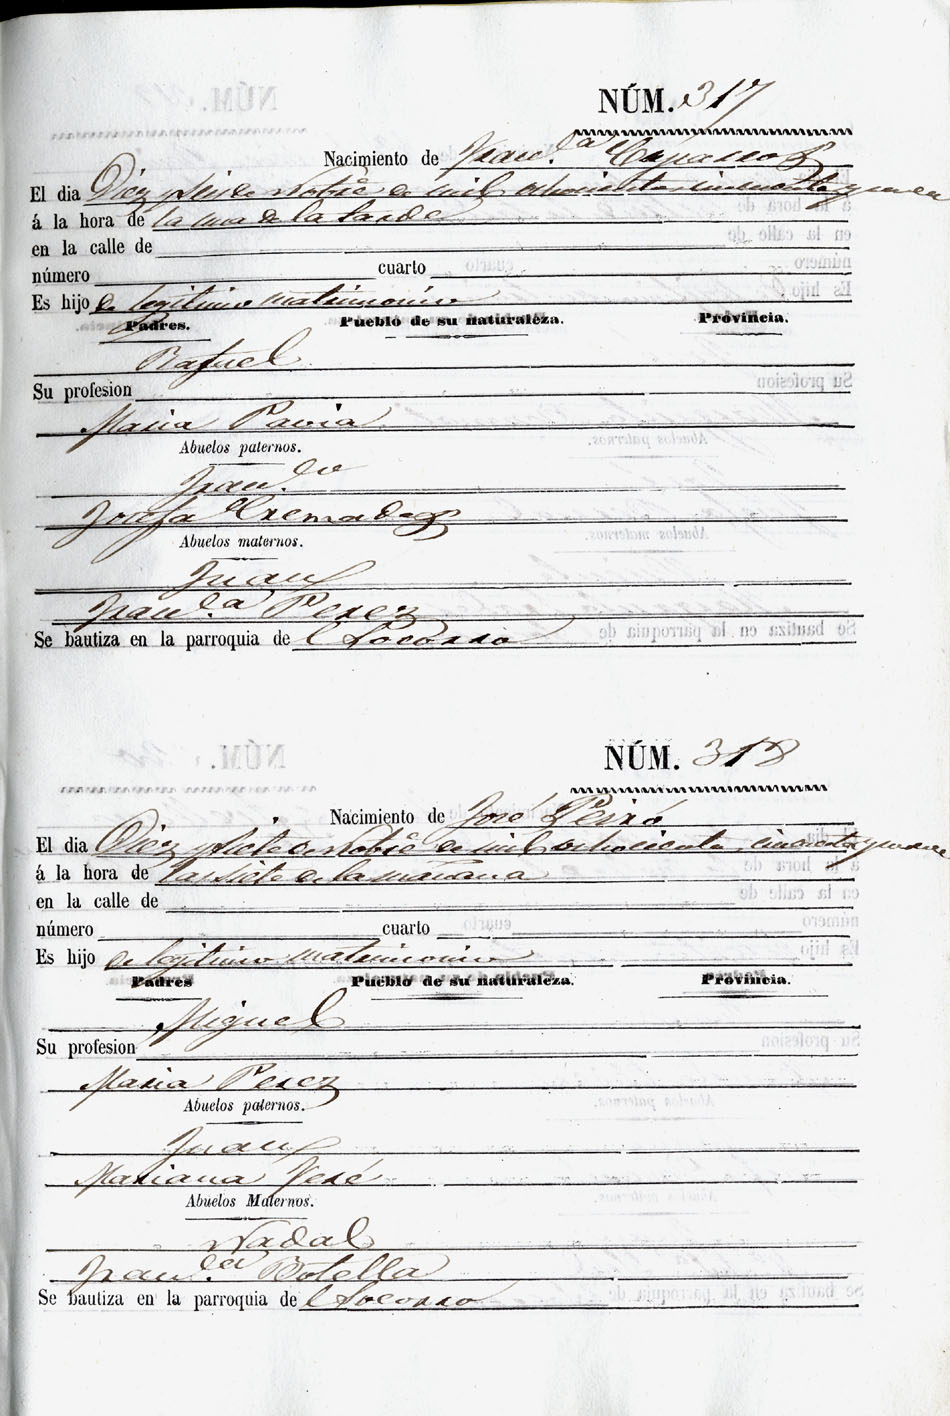 NÚM. 317
Nacimiento de Fran.ca Caparros
El dia Diez y seis de Nobre de mil ochocientos cincuenta y nueve
á la hora de la una de la tarde
en la calle de
número cuarto
Es hijo de legitimo matrimonio
Padres. Pueblo de su naturaleza. Provincia.
Rafael
Su profesion
Maria Pavia
Abuelos paternos.
Fran.co
Josefa Cremades
Abuelos maternos.
Juan
Fran.ca Perez
Se bautiza en la parroquia de l Socorro
NÚM. 318
Nacimiento de José Peiró
El dia Diez y siete de Nobre de mil ochocientos cincuenta y nueve
á la hora de las siete de la mañana
en la calle de
número cuarto
Es hijo de legitimo matrimonio
Padres Pueblo de su naturaleza. Provincia.
Miguel
Su profesion
Maria Perez
Abuelos paternos.
Juan
Mariana
Abuelos Maternos.
Nadal
Fran.ca Botella
Se bautiza en la parroquia de l Socorro